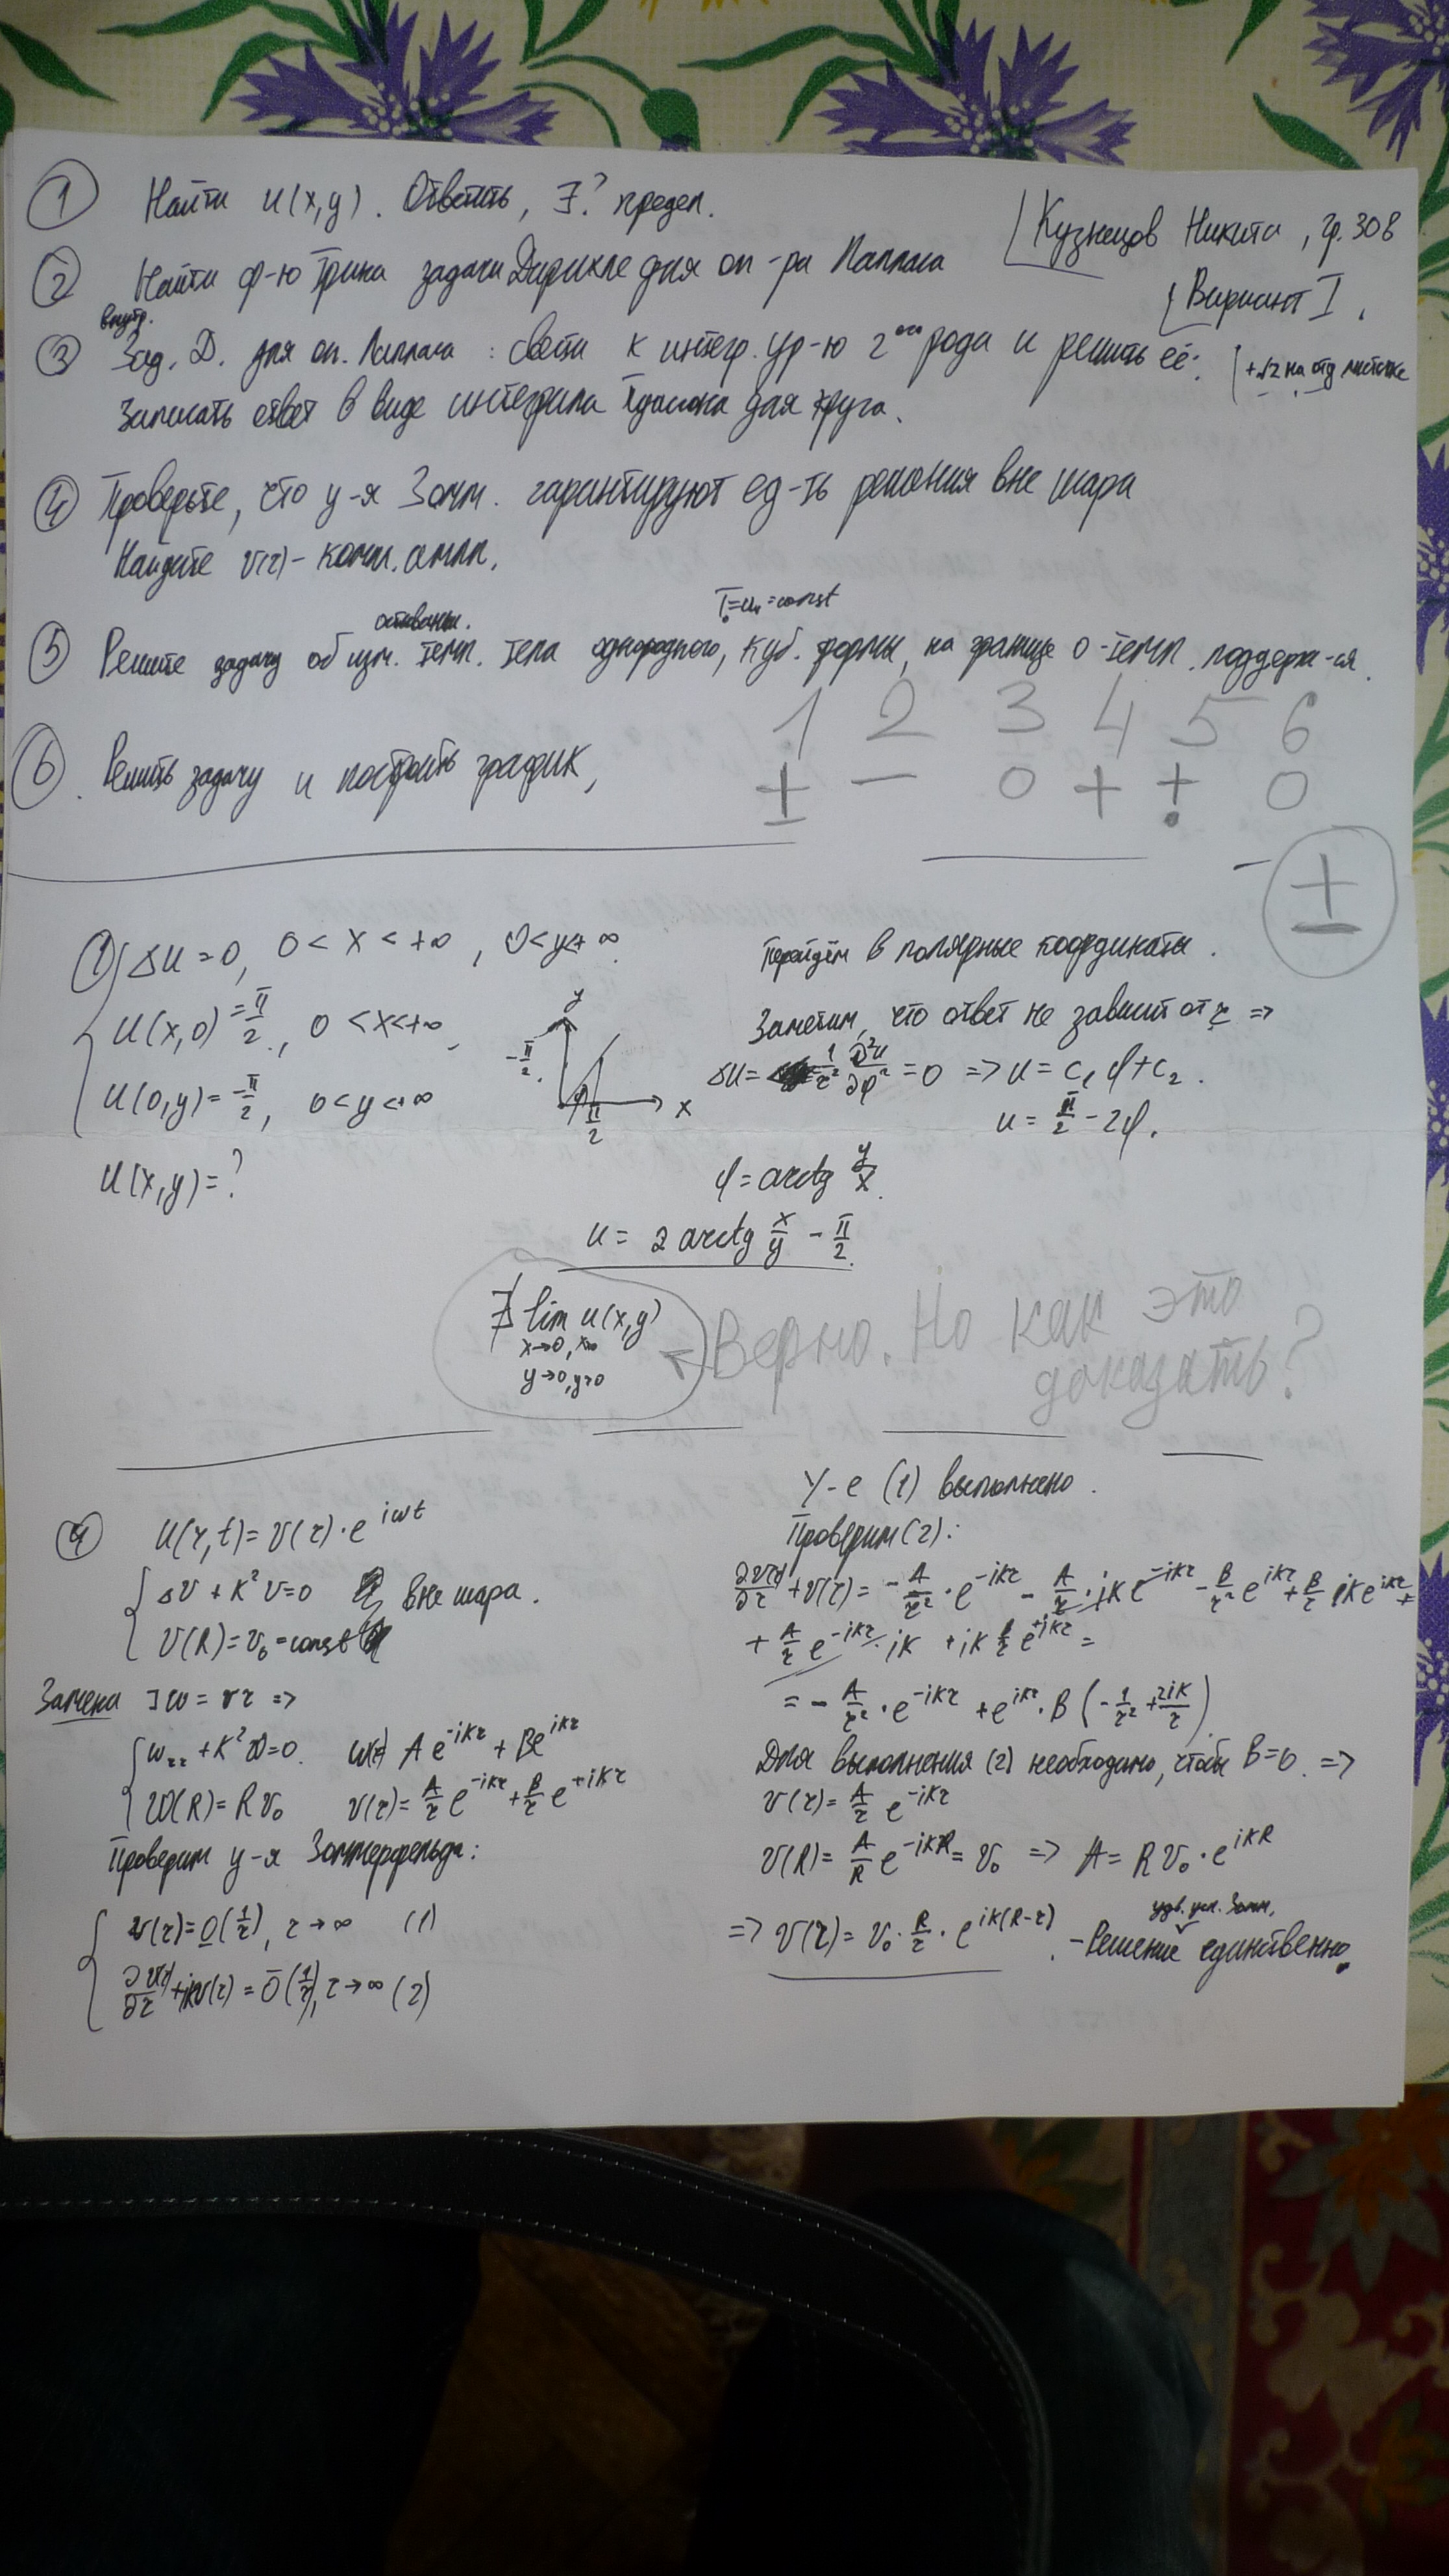 ① Найти u(x,y). Ответить, ∃? предел.
Кузнецов Никита, гр. 308
Вариант I.
② Найти ф-ю Грина задачи Дирихле для оп-ра Лапласа
внутр.
③ Зад. Д. для оп. Лапласа: свести к интегр. ур-ю 2ого рода и решить её.
+√2 на отд листочке
Записать ответ в виде интеграла Пуассона для круга.
④ Проверьте, что у-я Зомм. гарантируют ед-ть решения вне шара
Найдите v(r) – комп. ампл.
остыван. T=u₀=const
⑤ Решите задачу об изм. темп. тела однородного, куб. формы, на границе 0-темп. поддерж-ся.
1 2 3 4 5 6
⑥. Решить задачу и построить график,
± − 0 + +. 0
− ±
① Δu=0, 0<x<+∞, 0<y<+∞.
u(x,0)=π/2, 0<x<+∞,
u(0,y)=-π/2, 0<y<+∞
u(x,y)=?
y
-π/2
φ
x
π/2
Перейдём в полярные координаты.
Заметим, что ответ не зависит от r =>
Δu= 1/r² ∂²u/∂φ² =0 => u=c₁φ+c₂.
u=π/2-2φ.
φ=arctg y/x.
u= 2 arctg x/y - π/2.
∄ lim u(x,y)
x→0, x>0
y→0, y>0
Верно. Но как это
доказать?
④ u(r,t)=v(r)·e^{iωt}
Δv+k²v=0 вне шара.
v(R)=v₀=const
Замена ∃ w=vr =>
w_{rr}+k²w=0. w(r)= Ae^{-ikr}+Be^{ikr}
w(R)=Rv₀ v(r)=A/r e^{-ikr}+B/r e^{+ikr}
Проверим у-я Зоммерфельда:
v(r)=O(1/r), r→∞ (1)
∂v(r)/∂r+ikv(r)=ō(1/r), r→∞ (2)
У-е (1) выполнено.
Проверим (2):
∂v(r)/∂r+v(r)=-A/r²·e^{-ikr}-A/r·ike^{-ikr}-B/r²e^{ikr}+B/r ike^{ikr}+
+A/r e^{-ikr}·ik+ik B/r e^{+ikr}=
=-A/r²·e^{-ikr}+e^{ikr}·B(-1/r²+2ik/r)
Для выполнения (2) необходимо, чтобы B=0. =>
v(r)=A/r e^{-ikr}
v(R)=A/R e^{-ikR}=v₀ => A=Rv₀·e^{ikR}
удв. усл. Зомм,
=> v(r)=v₀·R/r·e^{ik(R-r)}. -Решение единственно.